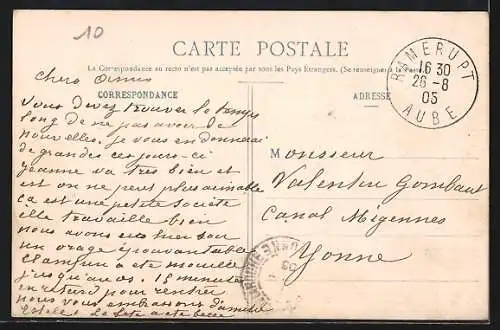 10
CARTE POSTALE
La Correspondance au recto n'est pas acceptée par tous les Pays Étrangers. (Se renseigner à la
CORRESPONDANCE
ADRESSE
RAMERUPT
16 30
26 - 8
05
AUBE
chers Amis
Vous devez trouver le temps
long de ne pas avoir de
nouvelles, je vous en donnerai
de grandes ces jours-ci
jeanne va très bien et
est on ne peut plus aimable
ça est une petite société
elle travaille bien
nous avons eu hier soir
un orage épouvantable
a été mouillé
jusqu'au os. 15 minutes
en retard pour rentrer
nous vous embrassons d'amitié
la fête a été belle
Monsieur
Valentin Gombaut
Canal Migennes
Yonne
YONNE